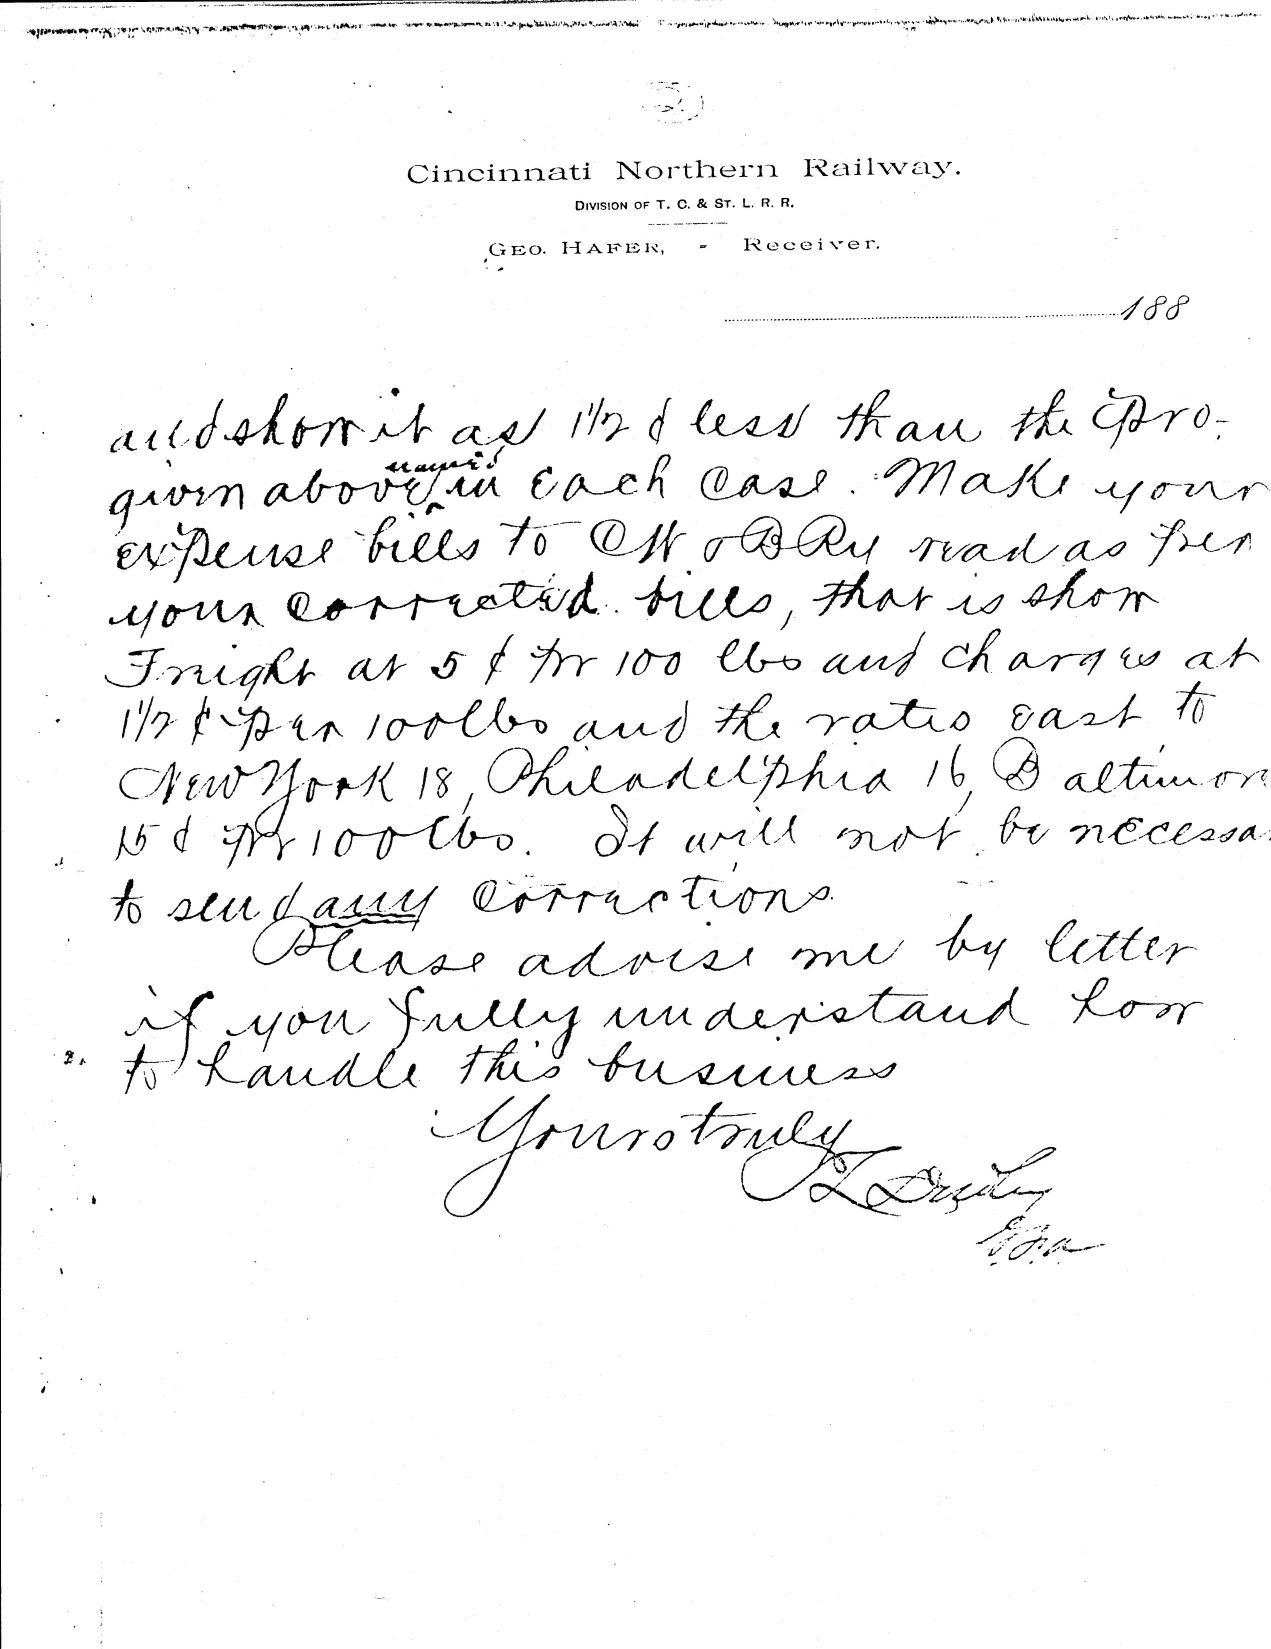 Cincinnati Northern Railway.
DIVISION OF T. C. & ST. L. R. R.
GEO. HAFER, - Receiver.
188
and show it as 1 1/2 ¢ less than the Pro-
given above named in each case. Make your
expense bills to CW & B Ry read as per
your corrected bills, that is show
Freight at 5 ¢ pr 100 lbs and charges at
1 1/2 ¢ per 100 lbs and the rates east to
New York 18, Philadelphia 16, Baltimore
15 ¢ pr 100 lbs. It will not be necessa
to send any corrections.
Please advise me by letter
if you fully understand how
to handle this business
Yours truly